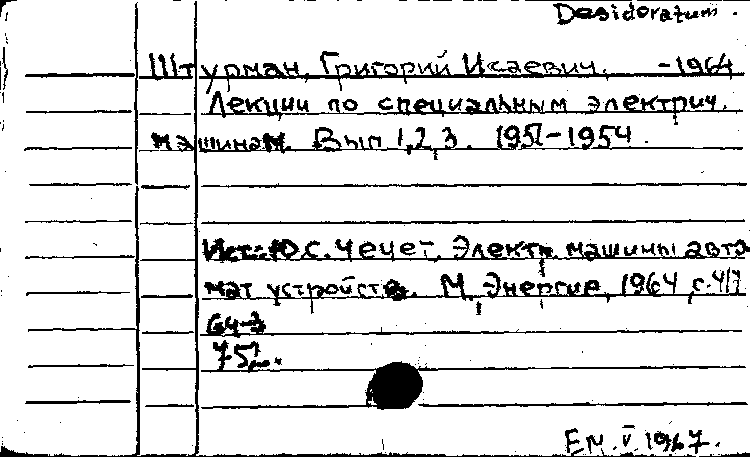 Desideratum.
Штурман, Григорий Исаевич. -1964
Лекции по специальным электрич.
машинам. Вып 1,2,3. 1951-1954.
Ист.: Ю.С. Чечет. Электр. машины авто
мат устройств. М. Энергия, 1964, с. 417
64-3
752.
EN. V. 1967.